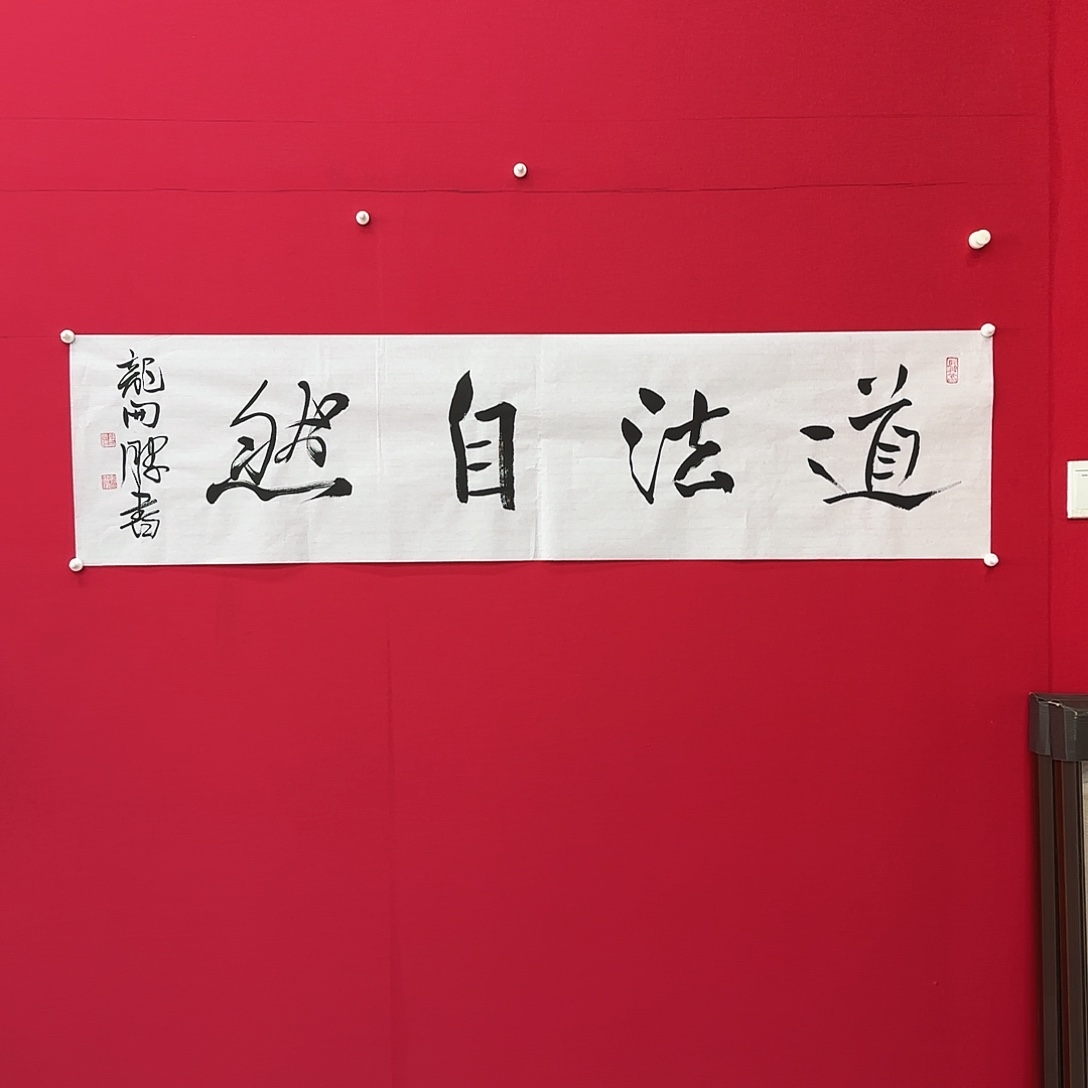 道法自然
龍開勝書